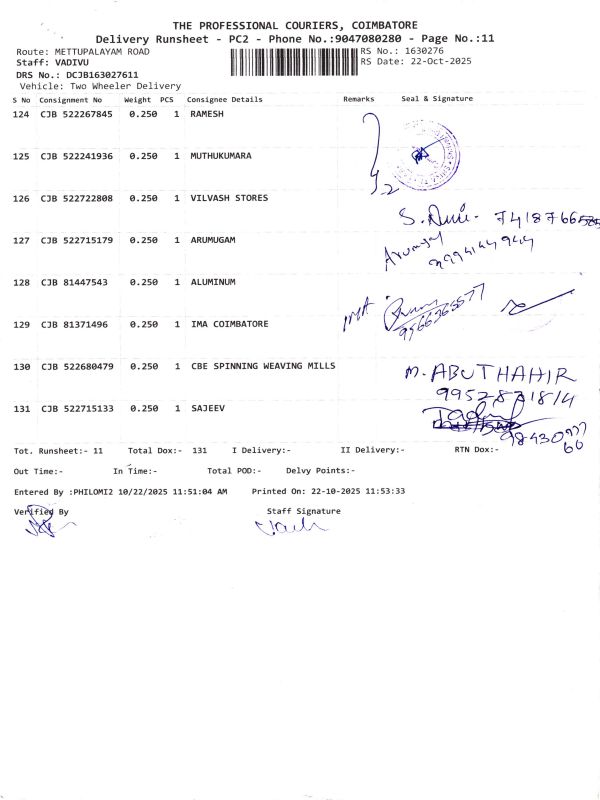 THE PROFESSIONAL COURIERS, COIMBATORE
Delivery Runsheet - PC2 - Phone No.:9047080280 - Page No.:11
Route: METTUPALAYAM ROAD RS No.: 1630276
Staff: VADIVU RS Date: 22-Oct-2025
DRS No.: DCJB163027611
Vehicle: Two Wheeler Delivery
S No Consignment No Weight PCS Consignee Details Remarks Seal & Signature
124 CJB 522267845 0.250 1 RAMESH
125 CJB 522241936 0.250 1 MUTHUKUMARA
2
126 CJB 522722808 0.250 1 VILVASH STORES
127 CJB 522715179 0.250 1 ARUMUGAM
Arumugam
9994144944
128 CJB 81447543 0.250 1 ALUMINUM
129 CJB 81371496 0.250 1 IMA COIMBATORE
IMA
130 CJB 522680479 0.250 1 CBE SPINNING WEAVING MILLS
M. ABUTHAHIR
131 CJB 522715133 0.250 1 SAJEEV
Tot. Runsheet:- 11 Total Dox:- 131 I Delivery:- II Delivery:- RTN Dox:-
Out Time:- In Time:- Total POD:- Delvy Points:-
Entered By :PHILOMI2 10/22/2025 11:51:04 AM Printed On: 22-10-2025 11:53:33
Verified By Staff Signature